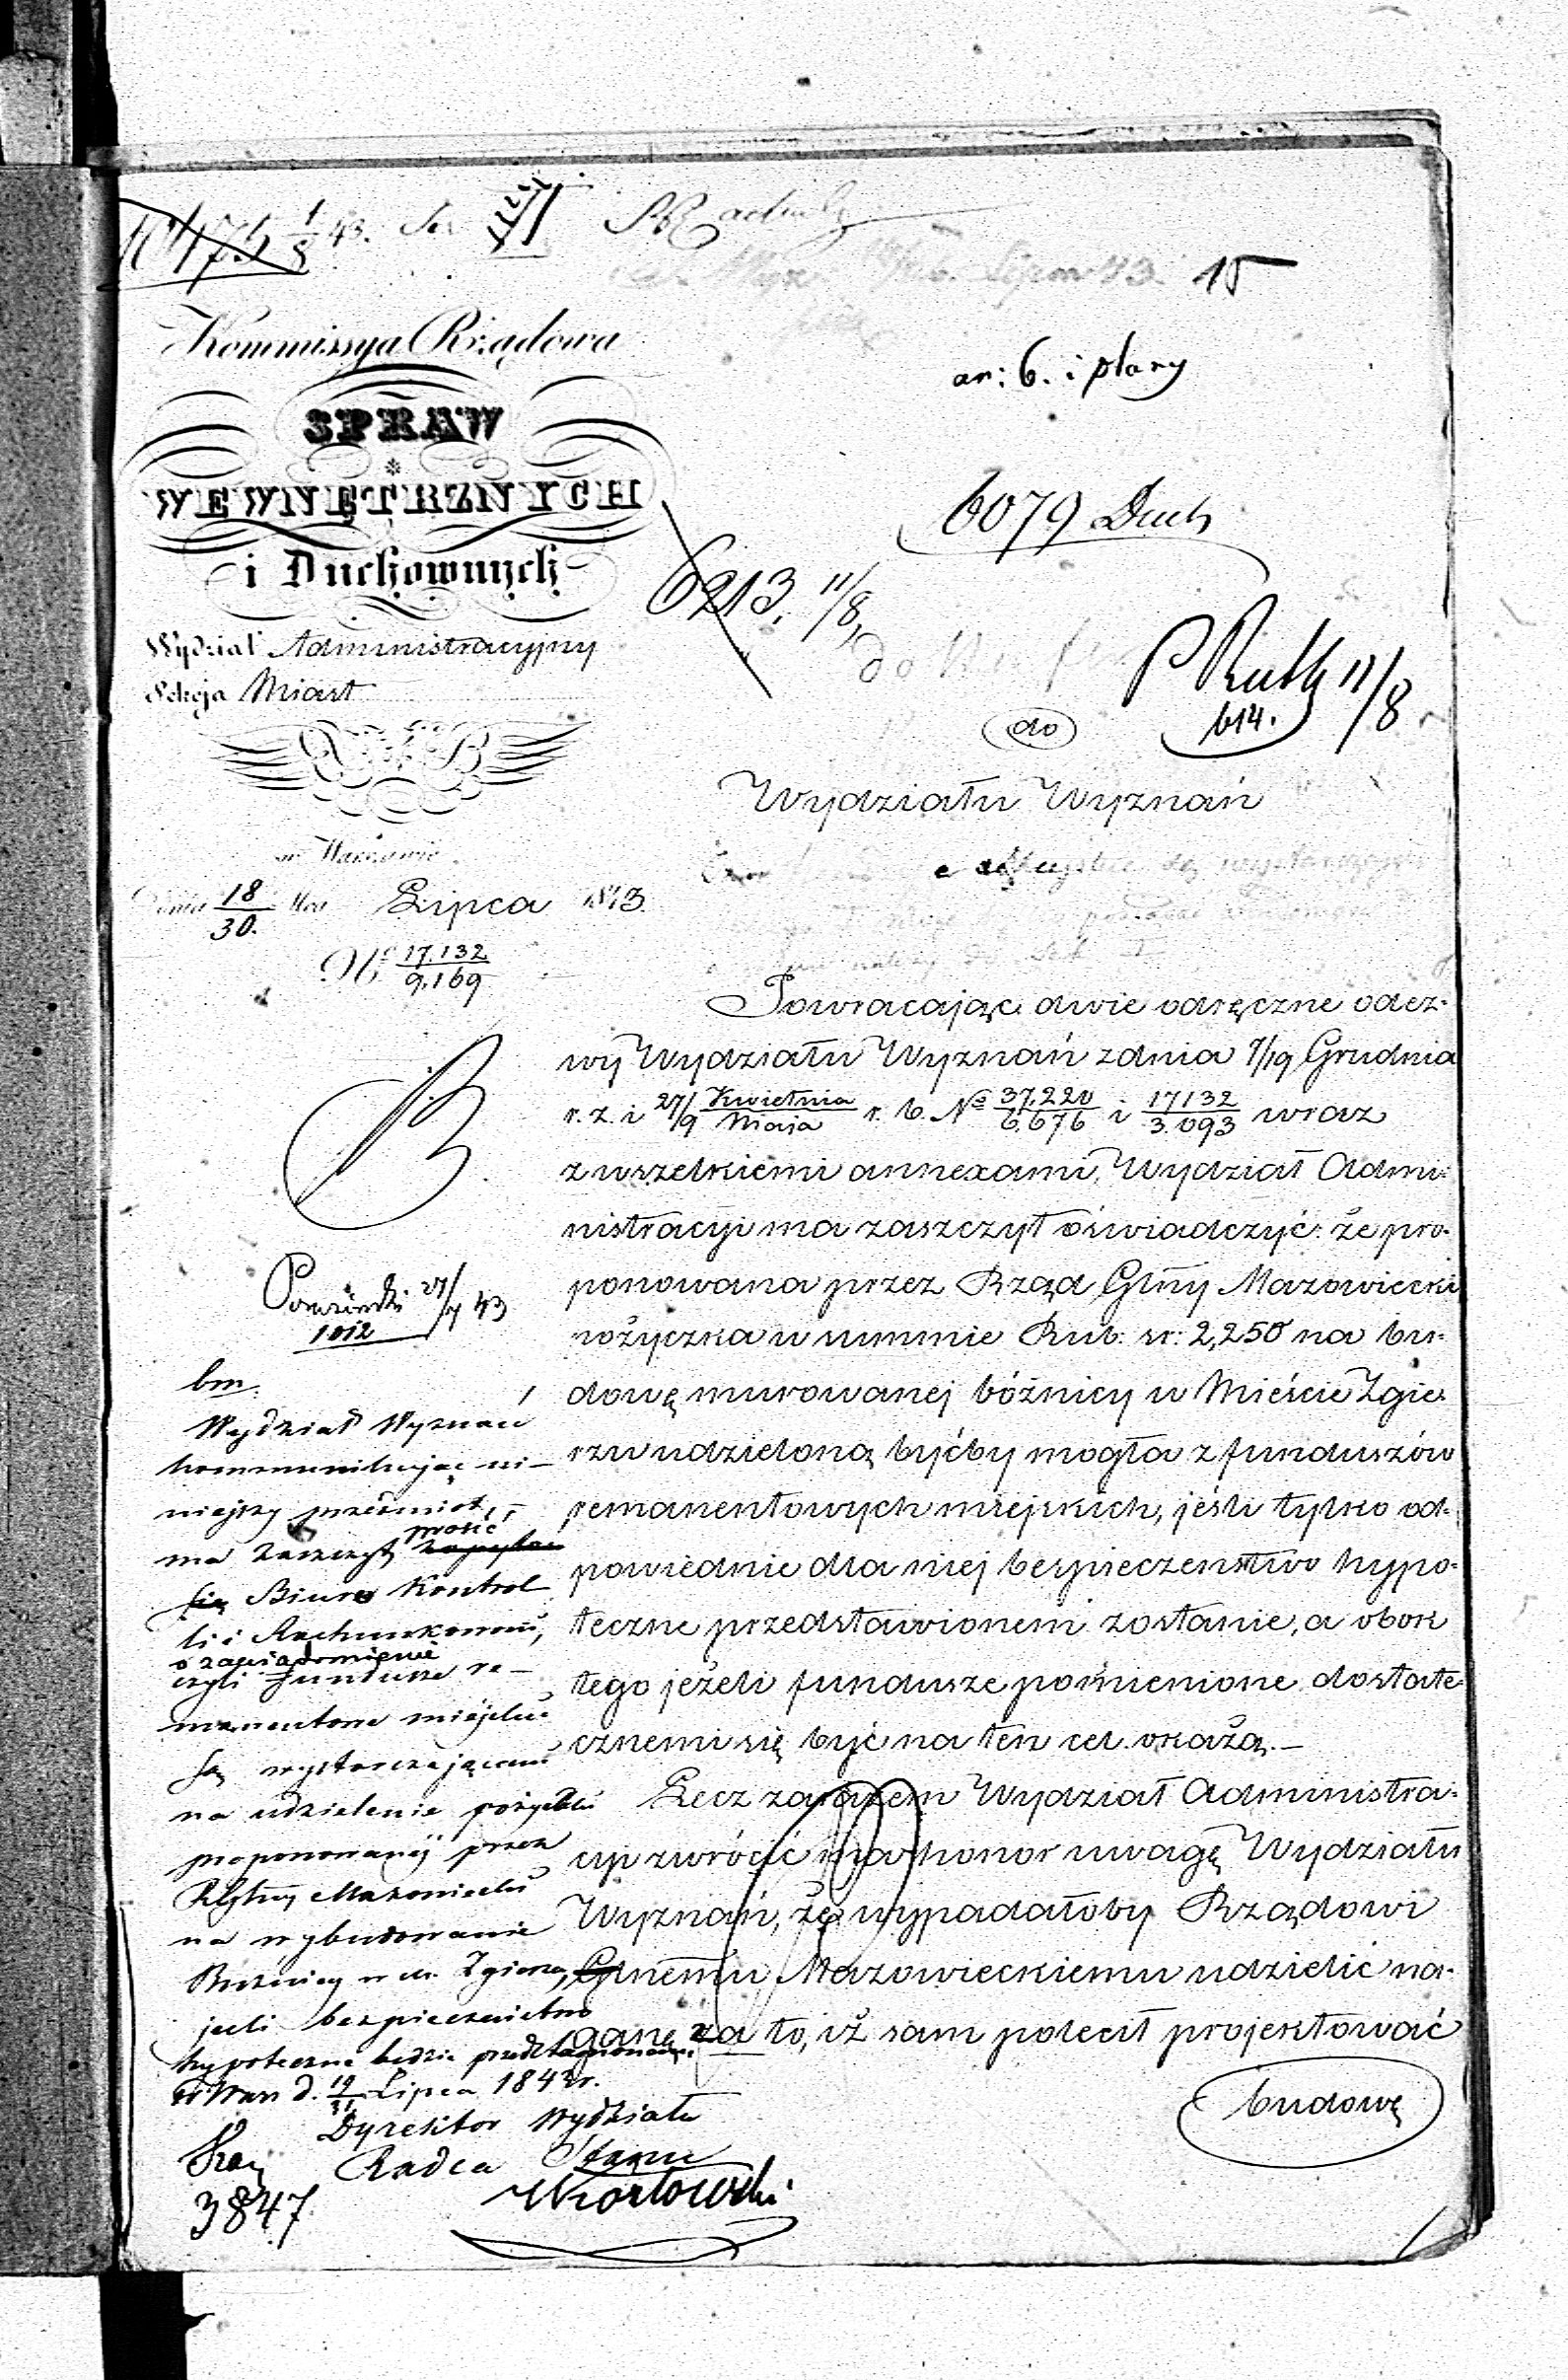 10473 1/8 43.
15
Kommissya Rządowa
SPRAW
WEWNĘTRZNYCH
i Duchownych
an: 6. i plany
6079 Duch
6213. 11/8
Wydział Administracyjny
Sekcja Miast
11/8
614.
do
Wydziału Wyznań
w Warszawie
Dnia 18/30. Mca Lipca 1843.
Nr. 17.132/9.169
Powracając dwie odręczne odez-
wy Wydziału Wyznań z dnia 7/19 Grudnia
r. z. i 27/9 Kwietnia/Maja r. b. No 37.220/6.676 i 17132/3.093 wraz
z wszelkiemi annexami, Wydział Admi-
nistracyi ma zaszczyt oświadczyć: że pro-
ponowana przez Rząd Glny Mazowiecki
pożyczka w summie Rub: sr: 2,250 na bu-
dowę murowanej bóźnicy w Mieście Zgie-
rzu udzieloną byćby mogła z funduszów
remanentowych miejskich, jeśli tylko od-
powiednie dla niej bespieczeństwo hypo-
teczne przedstawionem zostanie, a obok
tego jeżeli fundusze pomienione dostate-
cznemi się być na ten cel okażą.—
Lecz zarazem Wydział Administra-
cyi zwrócić ma honor uwagę Wydziału
Wyznań, że wypadałoby Rządowi
Glnemu Mazowieckiemu udzielić na-
ganę za to, iż sam polecił projektować
budowę
27/7 43
1012
bm.
Wydział Wyznań
kommunikując ni-
niejszy przedmiot,
ma zaszczyt prosić
się Biuro Kontrol
li i Rachunkowości,
o zawiadomienie
czyli fundusze re-
manentowe miejskie
są wystarczającemi
na udzielenie pożyczki
proponowanej przez
RGlny Mazowiecki
na wybudowanie
Bożnicy w m. Zgierzu,
jeśli bezpieczeństwo
hypoteczne będzie przedstawionem.
w Warsz d. 19/31 Lipca 1843 r.
Dyrektor Wydziału
Radca Stanu
3847